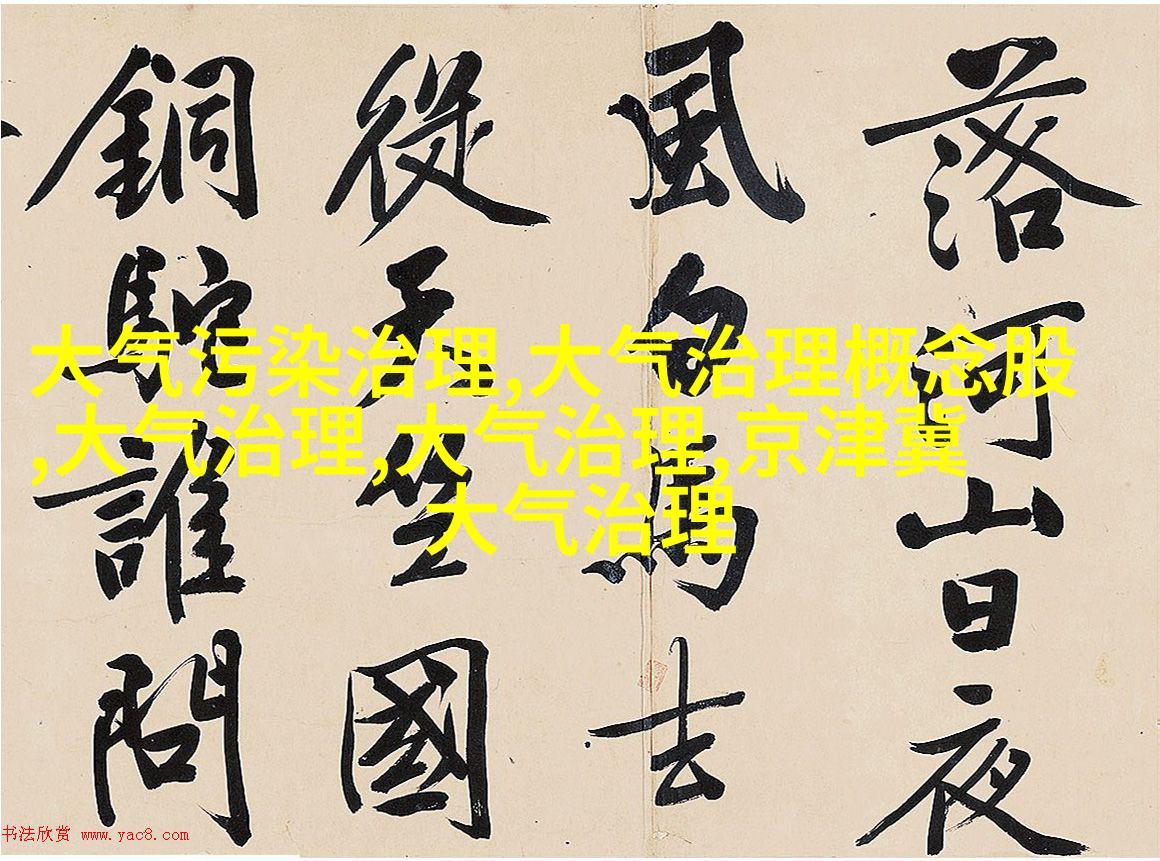 落河山日夜
風白馬去
從天竺國
銅駝誰問
大气污染治理,大气治理概念股
,大气治理,大气治理,京津冀
大气治理
书法欣赏 www.yac8.com